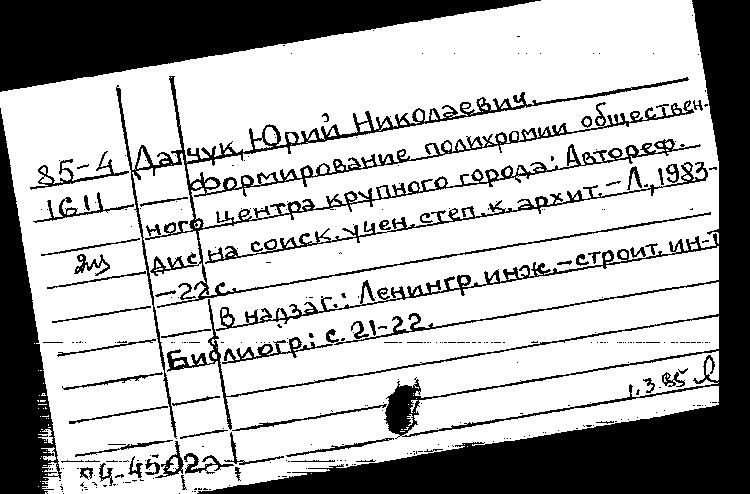 Датчук, Юрий Николаевич.
85-4 Формирование полихромии обществен-
1611 ного центра крупного города: Автореф.
дис на соиск. учен. степ. к. архит. – Л., 1983-
-22 с.
В надзаг.: Ленингр. инж.-строит. ин-т
Библиогр.: с. 21-22.
1.3.85
84-4502